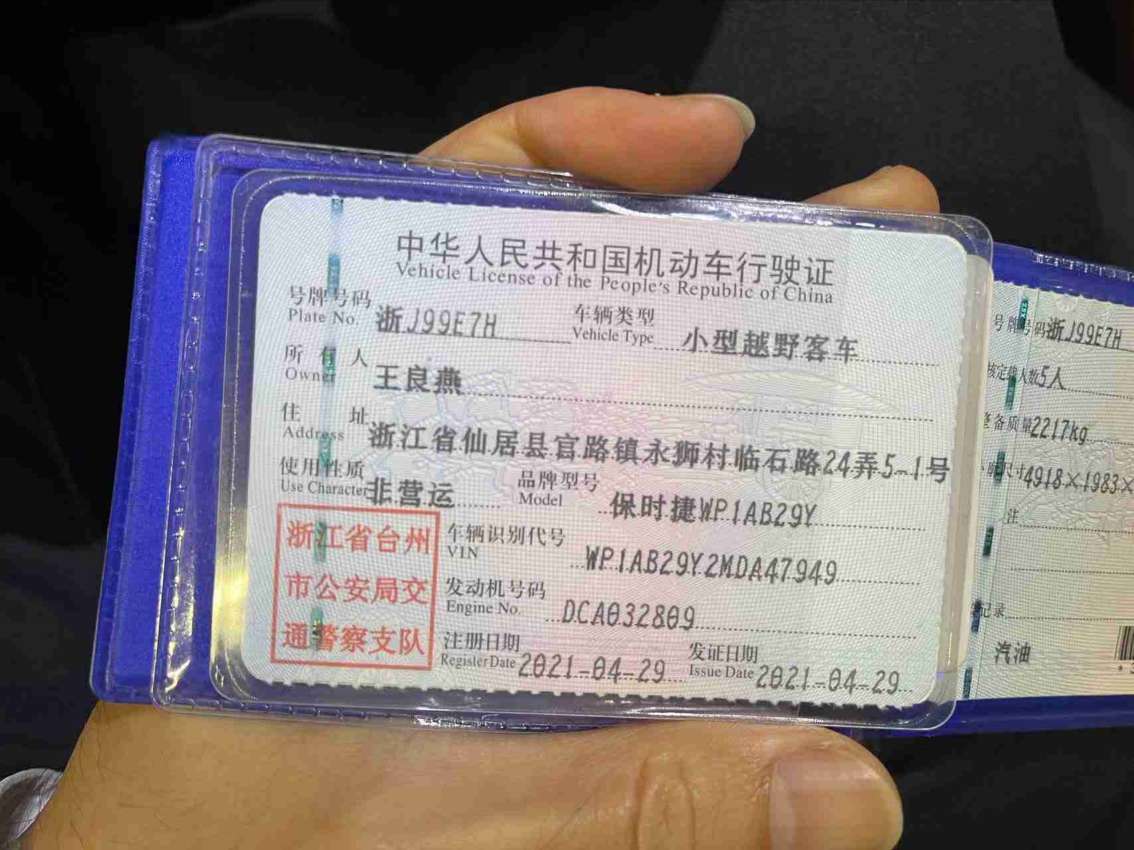 中华人民共和国机动车行驶证
Vehicle License of the People's Republic of China
号牌号码 浙J99E7H 车辆类型 小型越野客车
Plate No. Vehicle Type
所有人 王良燕
Owner
住址 浙江省仙居县官路镇永狮村临石路24弄5-1号
Address
使用性质 非营运 品牌型号 保时捷WP1AB29Y
Use Character Model
浙江省台州
市公安局交
通警察支队
车辆识别代号 WP1AB29Y2MDA47949
VIN
发动机号码 DCA032809
Engine No.
注册日期 2021-04-29 发证日期 2021-04-29
Register Date Issue Date
号牌号码 浙J99E7H
核定载人数 5人
整备质量 2217kg
尺寸 4918×1983×
注
记录
汽油